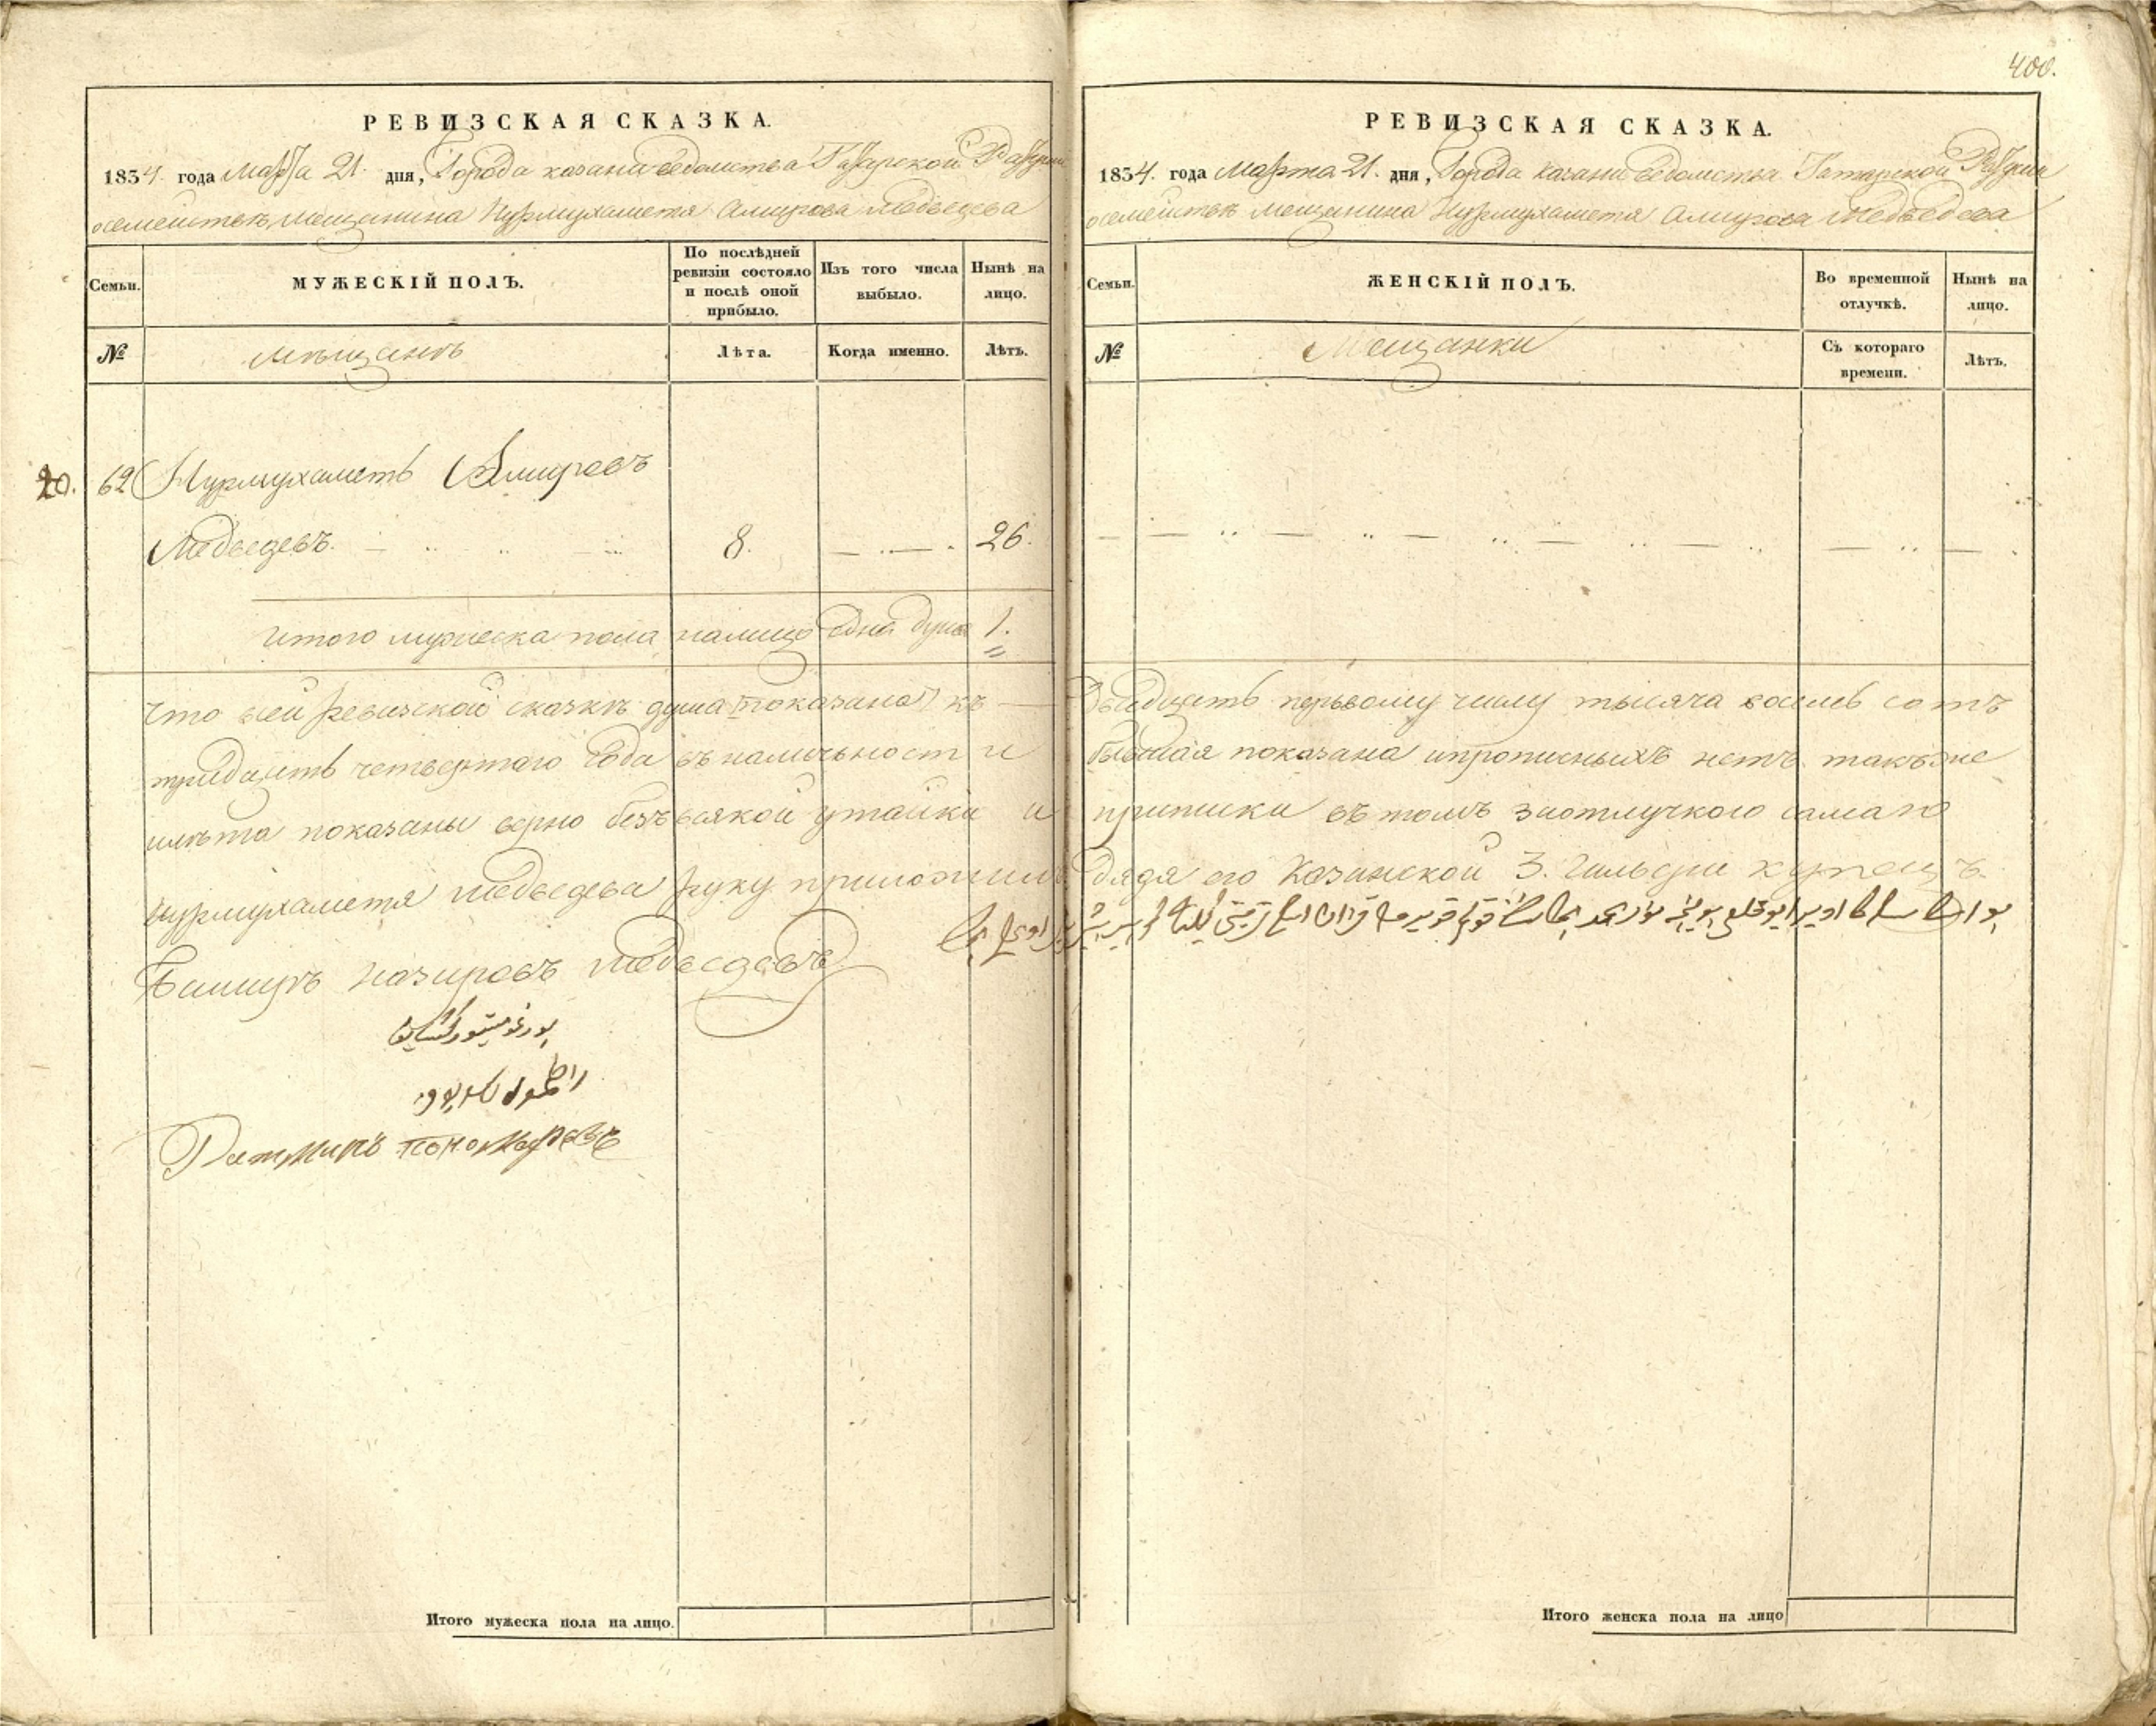 400.
РЕВИЗСКАЯ СКАЗКА.
1834. года Марта 21. дня, Города казани ведомства Татарской Ратуши
осемействѣ мещанина Нурмухаметя Амирова Медведева
Семьи.
МУЖЕСКІЙ ПОЛЪ.
По послѣдней ревизіи состояло и послѣ оной прибыло.
Изъ того числа выбыло.
Нынѣ на лицо.
№
мещанъ
Лѣта.
Когда именно.
Лѣтъ.
20. 62 Нурмухаметь Амировъ
Медведевъ. 8. 26.
Итого мужеска пола налицо одна душа 1.
РЕВИЗСКАЯ СКАЗКА.
1834. года Марта 21. дня, Города казани ведомства Татарской Ратуши
осемействѣ мещанина Нурмухаметя Амирова Медведева
Семьи.
ЖЕНСКІЙ ПОЛЪ.
Во временной отлучкѣ.
Нынѣ на лицо.
№
Мещанки
Съ котораго времени.
Лѣтъ.
что всей ревизской сказкѣ душа показана къ двадцеть первому числу тысяча восемь сотъ
тридцеть четвертаго года въ наличности бывшая показана ипрописныхъ нетъ также
илѣта показаны верно безъ всякой утайки и приписки въ томъ заотлучкою самаго
Нурмухаметя Медведева руку приложилъ дядя его Казанской 3. Гильдии купецъ
Баширъ Назировъ Медведевъ
Ратманъ Пономаревъ
Итого мужеска пола на лицо.
Итого женска пола на лицо